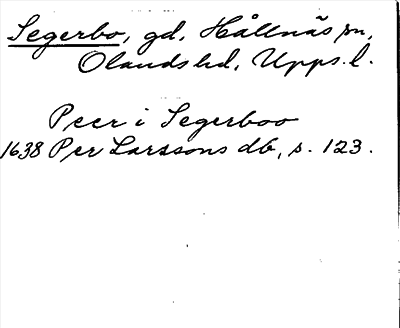 Segerbo, gd, Hållnäs sn,
Olands hd, Upps. l.
Peer i Segerboo
1638 Per Larssons db, s. 123.